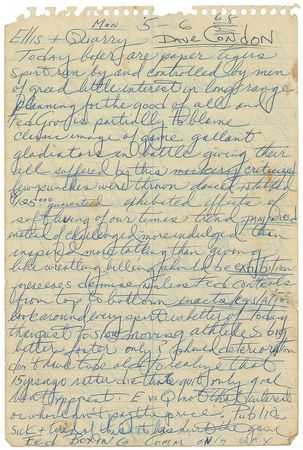 Mon 5-6 68
Ellis + Quarry Dave Condon
Today boxers are paper tigers
Sport run by and controlled by men
of greed little interest in long range
planning for the good of all and
Fed Gov is partially to blame
classic image of game gallant
gladiators in battle giving their
all suffered by this mockery criticized
few punches were thrown danced
125,000 guaranteed exhibited effects of
soft living of our times trend prepared
instead of challenged more indulged than
inspired more talking than giving
like wrestling billing should be exhibition
demise unless Fed controls
from top to bottom enacts legislation
look around every sport is better of today
than past to slow moving athletes big
better faster only deteriorating
don't have to be old to realize that
go only goal
next opponent. E vs Q not that interested
or who not pay the price. Public
sick + tired of this it has hurt the game
Fed Boxing Comm only way